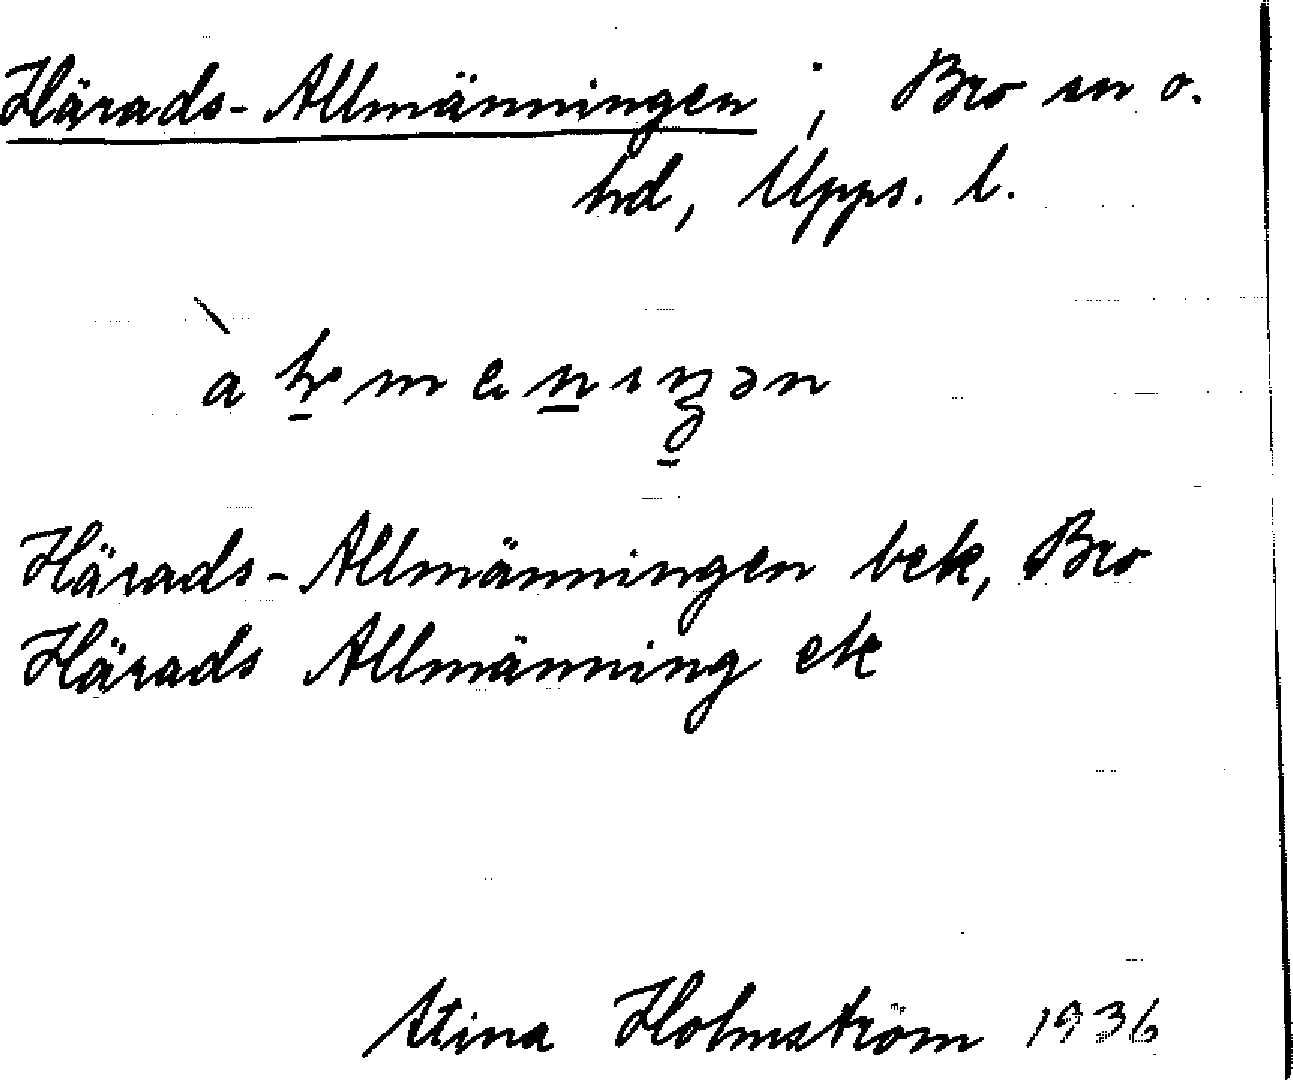 Härads-Allmänningen ; Bro sn o.
hd, Upps. l.
Härads-Allmänningen bek, Bro
Härads Allmänning ek
Stina Holmström 1936